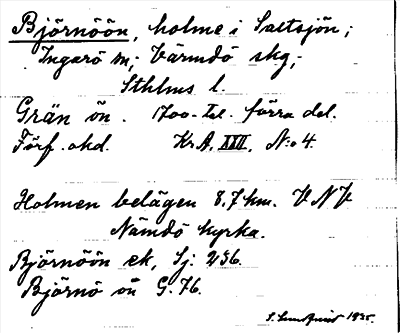 Björnöön, holme i Saltsjön;
Ingarö sn; Värmdö skg;
Sthlms l.
Grän ön. 1700-tal. förra del.
Förf. okd. Kr.A. XXII, N:o 4.
Holmen belägen 8,7 km. VNV
Nämdö kyrka.
Björnöön ek, Sj: 236.
Björnö ön G. 76.
S. Lundqvist 1935.